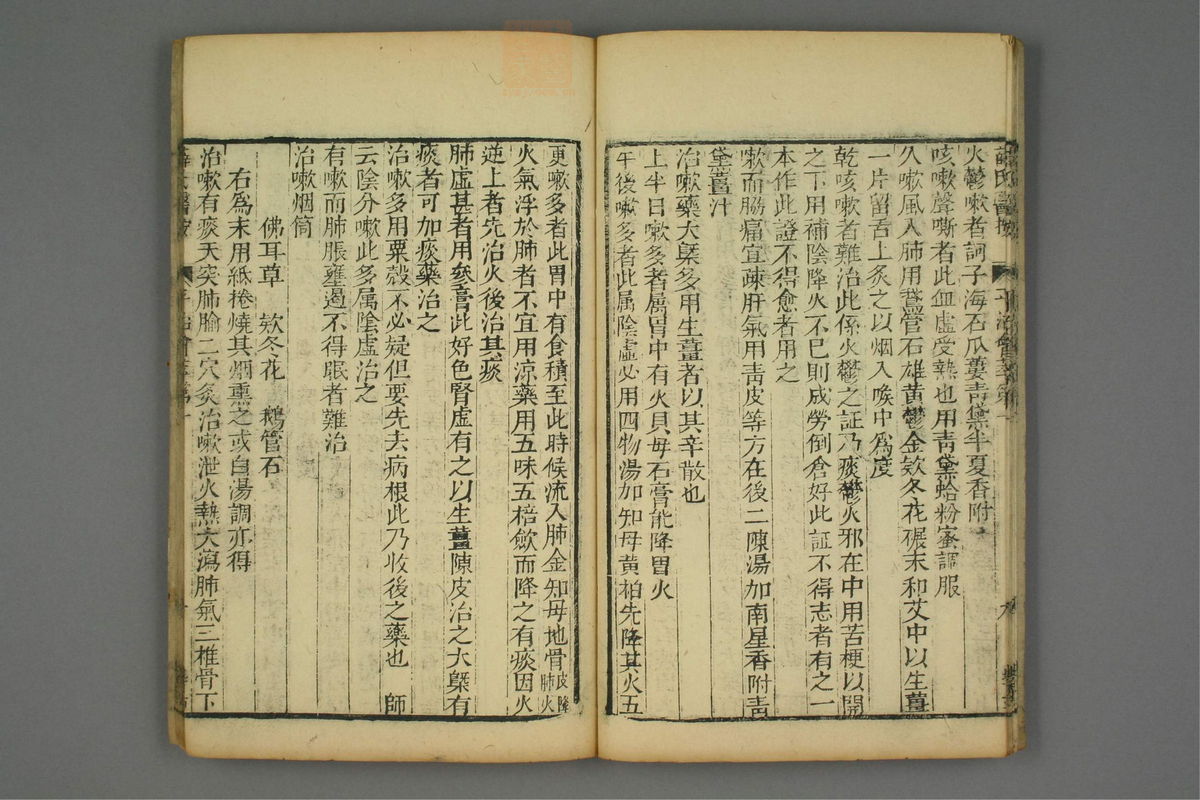 薛氏醫按 平治會萃卷一 九
火鬱嗽者訶子海石瓜蔞青黛半夏香附
咳嗽聲嘶者此血虛受熱也用青黛蛤粉蜜調服
久嗽風入肺用鵞管石雄黃鬱金欵冬花碾末和艾中以生薑
一片留舌上炙之以烟入喉中爲度
乾咳嗽者難治此係火鬱之証乃痰鬱火邪在中用苦梗以開
之下用補陰降火不已則成勞倒倉好此証不得志者有之一
本作此證不得愈者用之
嗽而脇痛宜疎肝氣用靑皮等方在後二陳湯加南星香附靑
黛薑汁
治嗽藥大槩多用生薑者以其辛散也
上半日嗽多者屬胃中有火貝母石膏能降胃火
午後嗽多者此属陰虛必用四物湯加知母黄柏先降其火五
更嗽多者此胃中有食積至此時候流入肺金知母地骨皮降肺火
火氣浮於肺者不宜用涼藥用五味五棓斂而降之有痰因火
逆上者先治火後治其痰
肺虛甚者用參膏此好色腎虛有之以生薑陳皮治之大槩有
痰者可加痰藥治之
治嗽多用粟殻不必疑但要先去病根此乃收後之藥也 師
云陰分嗽此多属陰虛治之
有嗽而肺脹壅遏不得眠者難治
治嗽烟筒
佛耳草 欵冬花 鵝管石
右爲末用紙捲燒其烟熏之或白湯調亦得
治嗽有痰天突肺腧二穴灸治嗽泄火熱大瀉肺氣三椎骨下